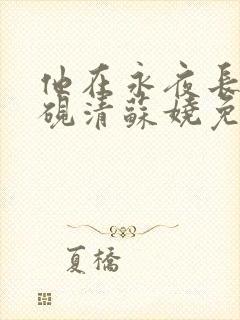 他在永夜長
硯清蘇嬈免
夏橋